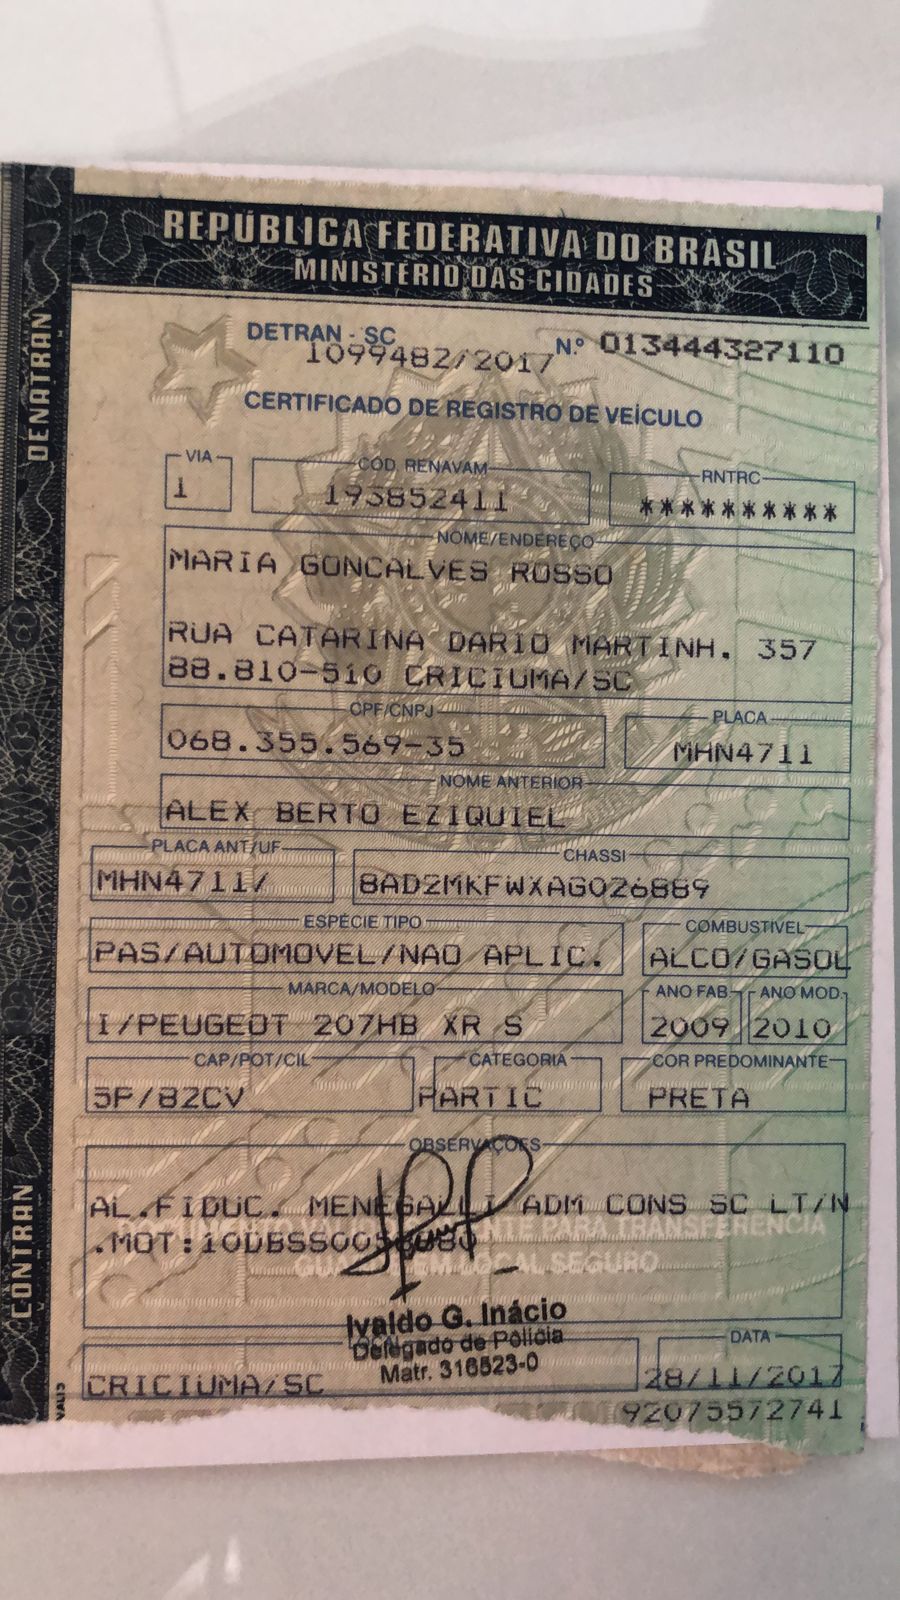 REPÚBLICA FEDERATIVA DO BRASIL
MINISTÉRIO DAS CIDADES
DENATRAN
CONTRAN
DETRAN - SC
1099482/2017
N.º 013444327110
CERTIFICADO DE REGISTRO DE VEÍCULO
VIA
1
CÓD. RENAVAM
193852411
RNTRC
**********
NOME/ENDEREÇO
MARIA GONCALVES ROSSO
RUA CATARINA DARIO MARTINH. 357
88.810-510 CRICIUMA/SC
CPF/CNPJ
068.355.569-35
PLACA
MHN4711
NOME ANTERIOR
ALEX BERTO EZIQUIEL
PLACA ANT/UF
MHN4711/
CHASSI
8AD2MKFWXAG026889
ESPÉCIE TIPO
PAS/AUTOMOVEL/NAO APLIC.
COMBUSTÍVEL
ALCO/GASOL
MARCA/MODELO
I/PEUGEOT 207HB XR S
ANO FAB.
2009
ANO MOD.
2010
CAP/POT/CIL
5P/82CV
CATEGORIA
PARTIC
COR PREDOMINANTE
PRETA
OBSERVAÇÕES
AL.FIDUC. MENEGALLI ADM CONS SC LT/N
PARA TRANSFERÊNCIA
LOCAL SEGURO
Ivaldo G. Inácio
Delegado de Polícia
Matr. 316523-0
CRICIUMA/SC
DATA
28/11/2017
92075572741